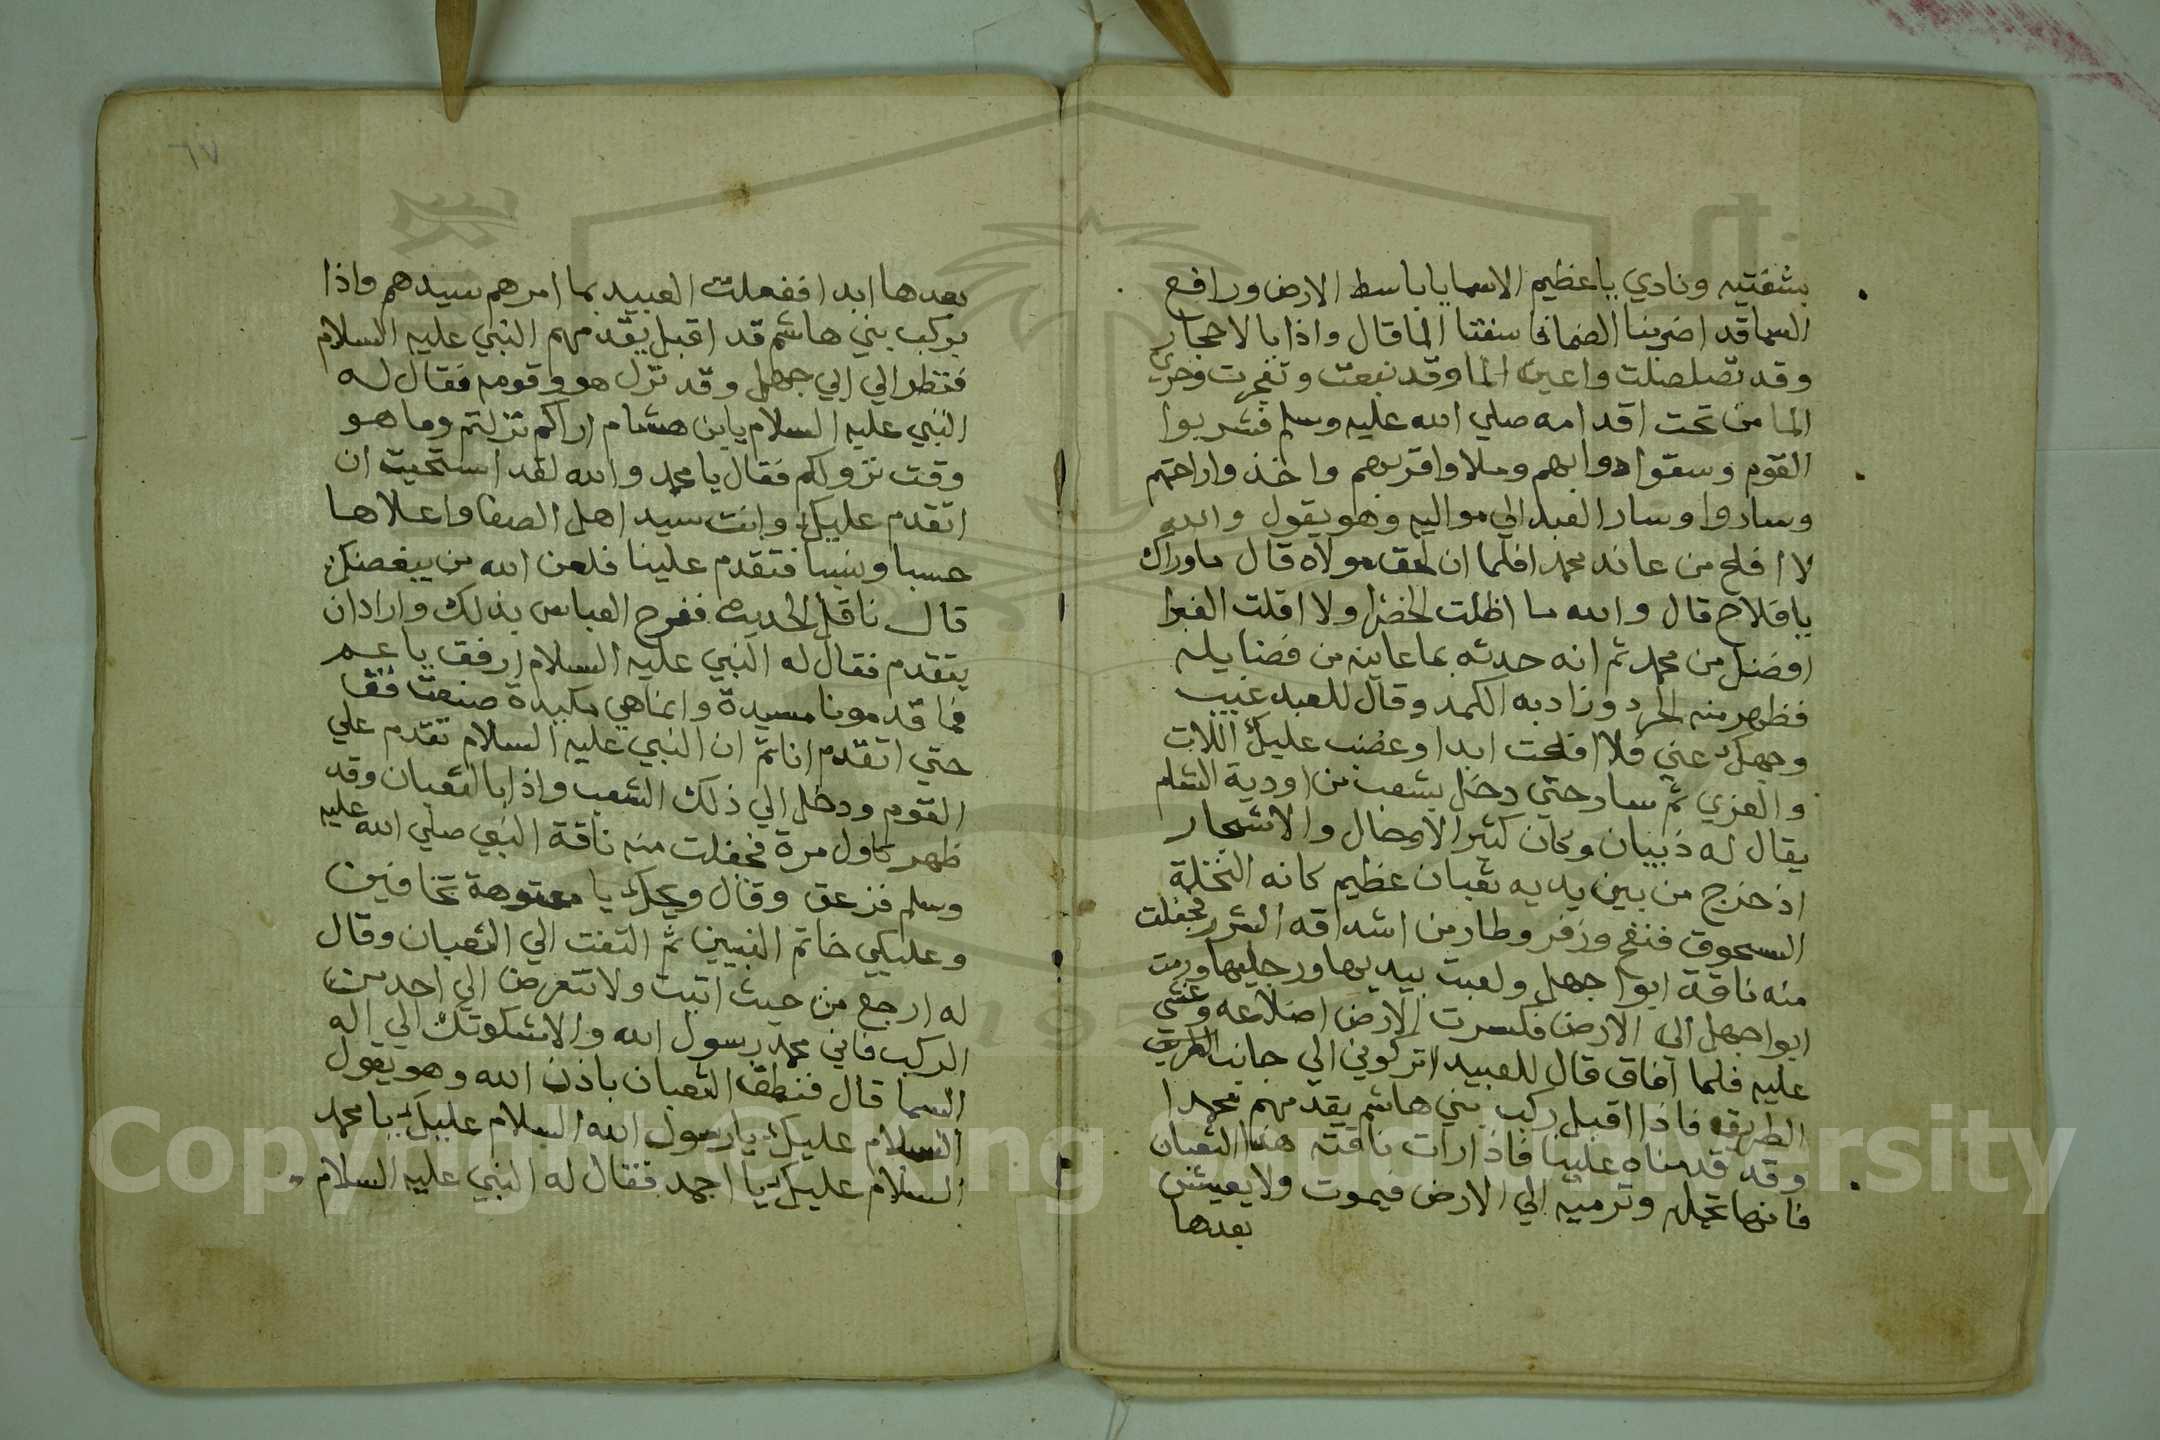 بشفتيه ونادي ياعظيم الاسما ياباسط الارض ورافع
السما قد اضربنا الضما فاسقنا الما قال واذا بالاحجار
وقد تصلصلت واعين الما وقد نبعت وتفجرت وجري
الما من تحت اقدامه صلي الله عليه وسلم فشربوا
القوم وسقوا دوابهم وملاوا قربهم واخذوا راحتهم
وساروا وسار العبد الي مواليه وهو يقول والله
لا افلح من عاند محمد افلما ان لحق مولاه قال ماوراك
يافلاح قال والله ما اظلت الخضرا ولا اقلت الغبرا
افضل من محمد ثم انه حدثه بما عاينه من فضايله
فظهر منه الحرد وزاد به الكمد وقال للعبد غيب
وجهك عني فلا افلحت ابدا وغضب عليك اللات
والعزي ثم سار حتي دخل بشعب من اودية الشام
يقال له ذبيان وكان كثير الاوحال والاشجار
اذ خرج من بين يديه ثعبان عظيم كانه النخلة
السحوق فنفخ وزفر وطار من اشداقه الشرر فجفلت
منه ناقة ابوا جهل ولعبت بيديها ورجليها ورمت
ابوا جهل الي الارض فكسرت الارض اضلاعه وغشي
عليه فلما افاق قال للعبيد اتركوني الي جانب الطريق
الطريق فاذا اقبل ركب بني هاشم يقدمهم محمدا
وقد قدمناه علينا فاذا رات ناقته هذا الثعبان
فانها تجفل وترميه الي الارض فيموت ولا يعيش
بعدها
٦٧
بعدها ابدا ففعلت العبيد بما امرهم سيدهم واذا
بركب بني هاشم قد اقبل يقدمهم النبي عليه السلام
فنظر الي ابي جهل وقد نزل هو وقومه فقال له
النبي عليه السلام يابن هشام اراكم نزلتم وما هو
وقت نزولكم فقال يا محمد والله لقد استحيت ان
اتقدم عليك وانت سيد اهل الصفا واعلاها
حسبا ونسبا فتقدم علينا فلعن الله من يبغضك
قال ناقل الحديث ففرح العباس بذلك واراد ان
يتقدم فقال له النبي عليه السلام ارفق يا عم
فما قدمونا وانما هي مكيدة صنعت فقا
حتي اتقدم انا ثم ان النبي عليه السلام تقدم علي
القوم ودخل الي ذلك الشعب واذا بالثعبان وقد
ظهر كاول مرة فجفلت منه ناقة النبي صلي الله عليه
وسلم فزعق وقال ويحك يا معتوهة تخافين
وعليكي خاتم النبيين ثم التفت الي الثعبان وقال
له ارجع من حيث اتيت ولا تتعرض الي احد من
الركب فاني محمد رسول الله والا شكوتك الي اله
السما قال فنطق الثعبان باذن الله وهو يقول
السلام عليك يا رسول الله السلام عليك يا محمد
السلام عليك يا احمد فقال له النبي عليه السلام
Copyright © King Saud University